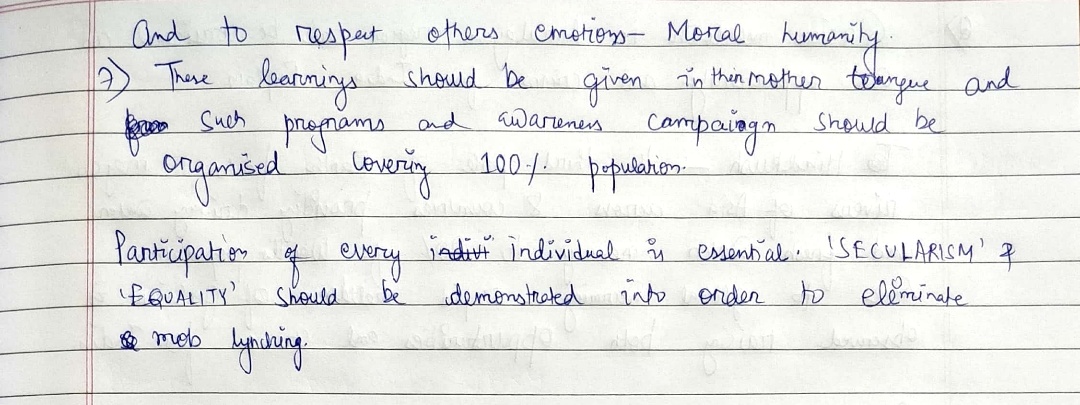 And to respect others emotions- Moral humanity.
7) These learnings should be given in their mother toungue and
such programs and awareness campaiogn should be
organised covering 100% population.
Participation of every indivi individual is essential. 'SECULARISM' &
'EQUALITY' should be demonstrated into order to eleminate
mob lynching.